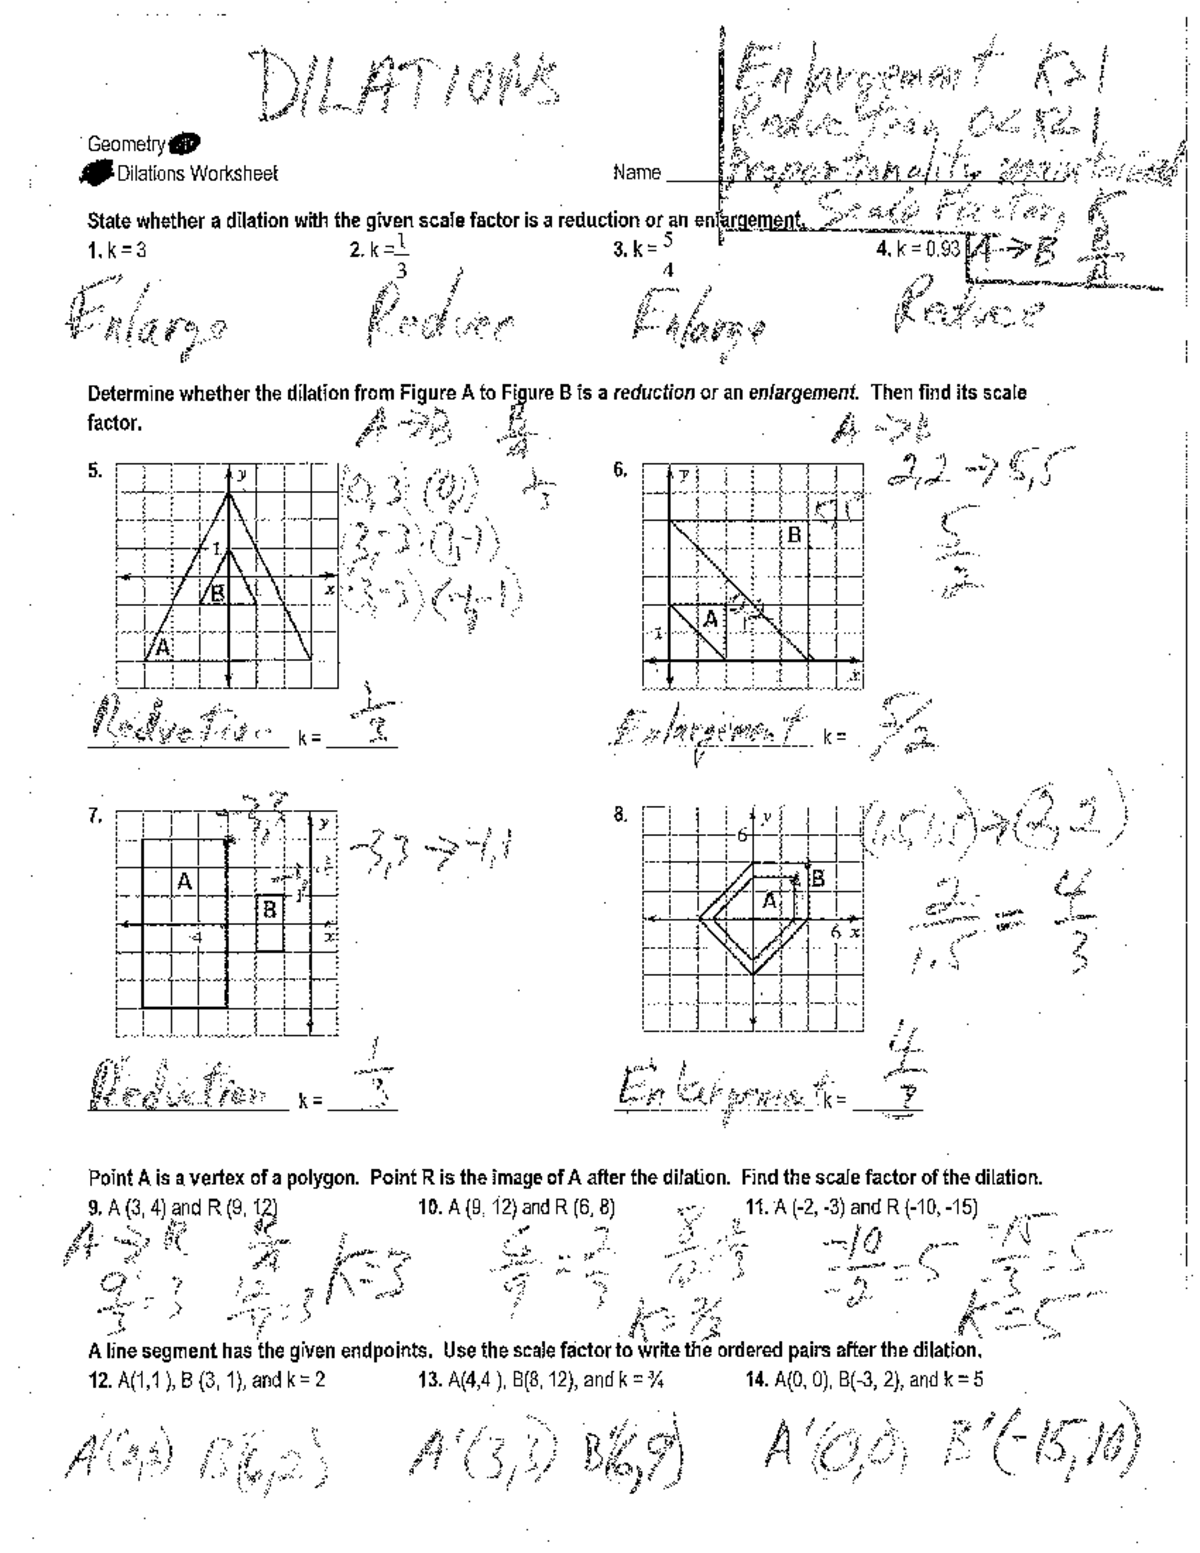 DILATIONS
Enlargement K>1
Reduction 0<K<1
Proportionality maintained
Scale Factor, K
A → B B/A
Geometry
Dilations Worksheet
Name
State whether a dilation with the given scale factor is a reduction or an enlargement.
1. k = 3 2. k = 1/3 3. k = 5/4 4. k = 0.93
Enlarge Reduce Enlarge Reduce
Determine whether the dilation from Figure A to Figure B is a reduction or an enlargement. Then find its scale
factor.
A → B B/A
A → B
5.
y
1
x
B
A
(0,3) (0,1) 1/3
(3,-3) (1,-1)
(-3,-3) (-1,-1)
Reduction k = 1/3
6.
y
5,5
B
A
1
x
2,2 → 5,5
5/2
Enlargement k = 5/2
7.
-3,3
y
A
-1,1
B
x
-3,3 → -1,1
Reduction k = 1/3
8.
y
6
B
A
6 x
(1.5,1.5) → (2,2)
2/1.5 = 4/3
Enlargement k = 4/3
Point A is a vertex of a polygon. Point R is the image of A after the dilation. Find the scale factor of the dilation.
9. A (3, 4) and R (9, 12) 10. A (9, 12) and R (6, 8) 11. A (-2, -3) and R (-10, -15)
A → R R/A
9/3 = 3 12/4 = 3 k=3
6/9 = 2/3 8/12 = 2/3
k = 2/3
-10/-2 = 5 -15/-3 = 5
k = 5
A line segment has the given endpoints. Use the scale factor to write the ordered pairs after the dilation.
12. A(1,1 ), B (3, 1), and k = 2 13. A(4,4 ), B(8, 12), and k = ¾ 14. A(0, 0), B(-3, 2), and k = 5
A'(2,2) B'(6,2) A'(3,3) B'(6,9) A'(0,0) B'(-15,10)